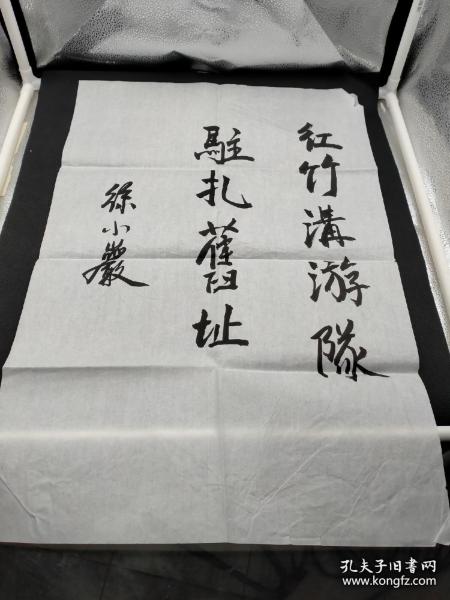 红竹溝游隊
駐扎舊址
徐小巖
孔夫子旧书网
www.kongfz.com